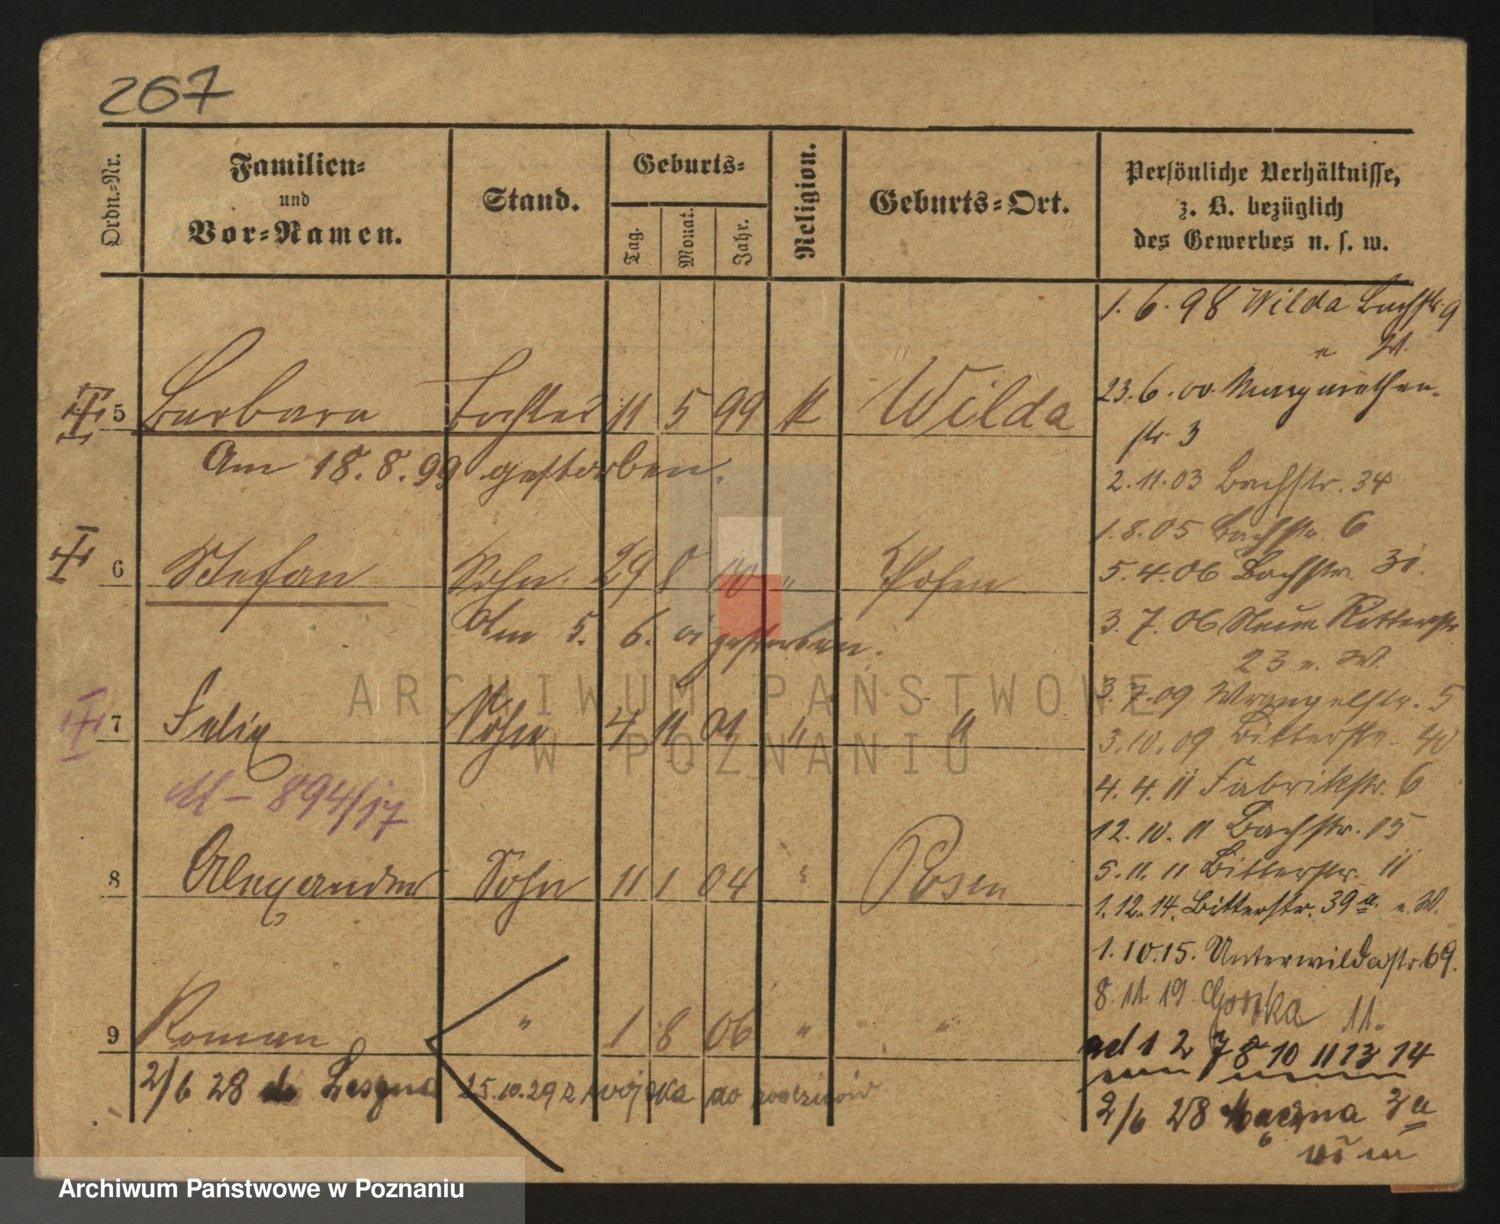 267
Ordn.=Nr.
Familien=
und
Vor=Namen.
Stand.
Geburts=
Tag.
Monat.
Jahr.
Religion.
Geburts=Ort.
Persönliche Verhältnisse,
z. B. bezüglich
des Gewerbes u. s. w.
5 Barbara Tochter 11 5 99 k Wilda
Am 18.8.99 gestorben.
6 Stefan Sohn 29 8 00 " Posen
Am 5. 6. 01 gestorben.
7 Felix Sohn 4 11 01 " "
M - 894/17
8 Alexander Sohn 11 1 04 " Posen
9 Roman " 1 8 06 " "
2/6 28 do 25.10.29 z wojska do rodziców
1.6.98 Wilda Bachstr. 9
n W.
23.6.00 Margarethen-
str. 3
2.11.03 Bachstr. 34
1.8.05 Bachstr. 6
5.4.06 Bachstr. 31.
3.7.06 Neue Ritterstr
23 n. W.
3.7.09 Wrangelstr. 5
3.10.09 Bitterstr. 40
4.4.11 Fabrikstr. 6
12.10.11 Bachstr. 15
5.11.11 Bitterstr. 11
1.12.14. Bitterstr. 39a n. W.
1.10.15. Unterwildastr. 69.
8.11.19 11.
ad 1 2 7 8 10 11 13 14
2/6 28 3a
ARCHIWUM PAŃSTWOWE
W POZNANIU
Archiwum Państwowe w Poznaniu